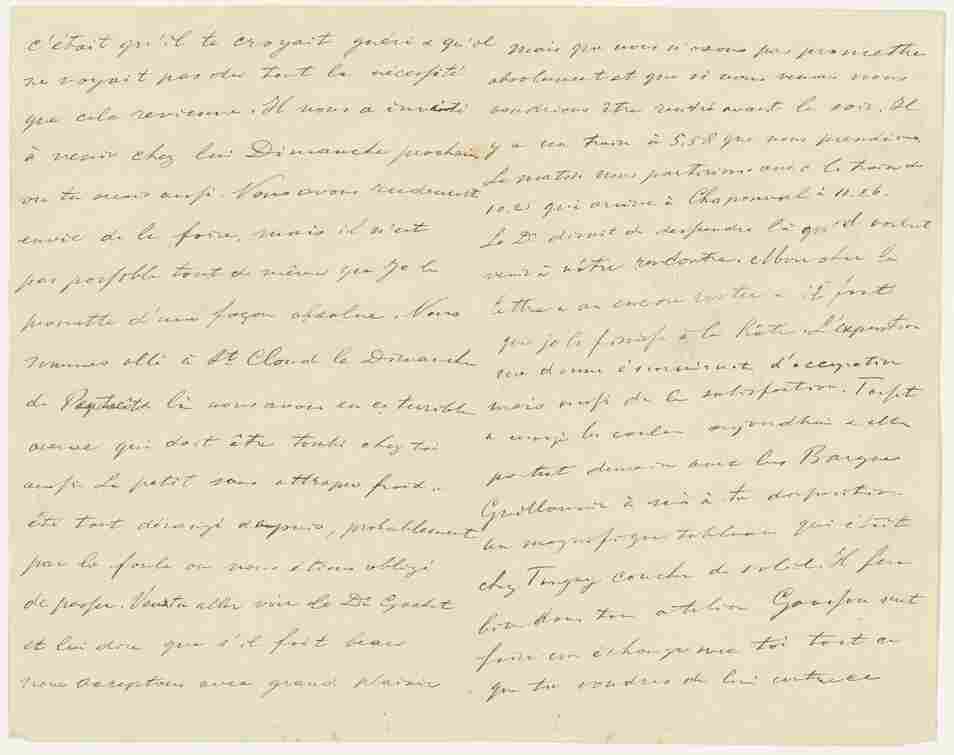 c'était qu'il te croyait guéri & qu'il
ne voyait pas du tout la nécessité
que cela revienne. Il nous a invité
à venir chez lui Dimanche prochain
ou tu serais aussi. Nous avons rudement
envie de le faire, mais il n'est
pas possible tout de même que je le
promette d'une façon absolue. Nous
sommes allé à St Cloud le Dimanche
de Pentecôte là nous avons eu ce terrible
averse qui doit être tombé chez toi
aussi. Le petit sans attraper froid a
été tout dérangé depuis, probablement
par la foule où nous étions obligé
de passer. Veux tu aller voir le Dr Gachet
et lui dire que s'il fait beau
nous acceptons avec grand plaisir
mais que nous n'osons pas promettre
absolument et que si nous venons nous
voudrions être rentré avant le soir. Il
y a un train à 5.58 que nous prendrions
Le matin nous partirions avec le train de
10.25 qui arrive à Chaponval à 11.26.
Le Dr disait de descendre là qu'il voulait
venir à nôtre rencontre. Mon cher la
lettre a encore & il faut
que je la finisse à la hâte. L'exposition
me donne énormément d'occupation
mais aussi de la satisfaction. Tasset
a les couleurs aujourd'hui & elles
partent demain avec les Barques
Guillaumin à mis à ta disposition
un magnifique tableau qui était
chez Tanguy coucher de soleil. Il fera
bien dans ton atelier Gausson veut
faire un échange avec toi tout ce
que tu voudras de lui contre ce